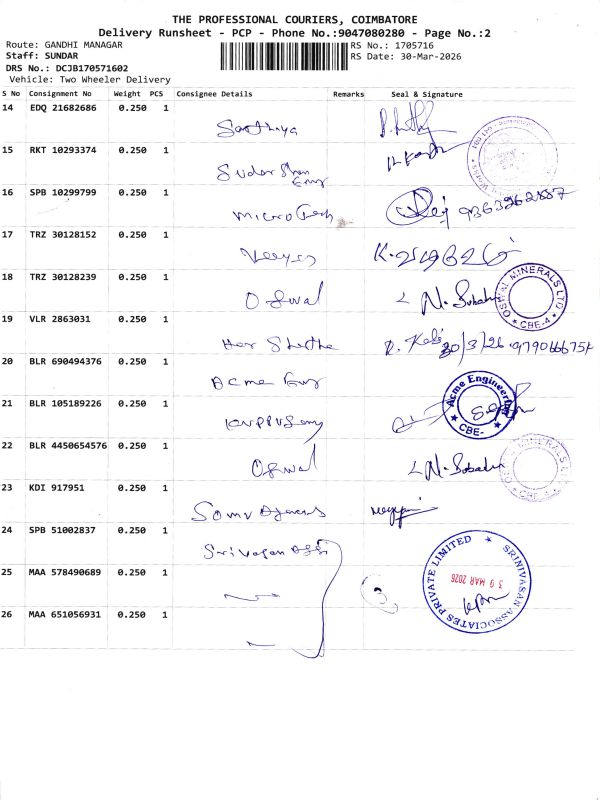 THE PROFESSIONAL COURIERS, COIMBATORE
Delivery Runsheet - PCP - Phone No.:9047080280 - Page No.:2
Route: GANDHI MANAGAR
RS No.: 1705716
Staff: SUNDAR
RS Date: 30-Mar-2026
DRS No.: DCJB170571602
Vehicle: Two Wheeler Delivery
S No Consignment No Weight PCS Consignee Details Remarks Seal & Signature
14 EDQ 21682686 0.250 1
15 RKT 10293374 0.250 1
16 SPB 10299799 0.250 1
Micro Tech
17 TRZ 30128152 0.250 1
18 TRZ 30128239 0.250 1
Oswal
OSWAL MINERALS LTD
CBE-4
19 VLR 2863031 0.250 1
30/3/26
20 BLR 690494376 0.250 1
Acme Eng
Acme Engineering
CBE-
21 BLR 105189226 0.250 1
22 BLR 4450654576 0.250 1
Oswal
MINERALS
CBE-4
23 KDI 917951 0.250 1
24 SPB 51002837 0.250 1
Srivasan Assi
SRINIVASAN ASSOCIATES PRIVATE LIMITED
30 MAR 2026
25 MAA 578490689 0.250 1
3
26 MAA 651056931 0.250 1